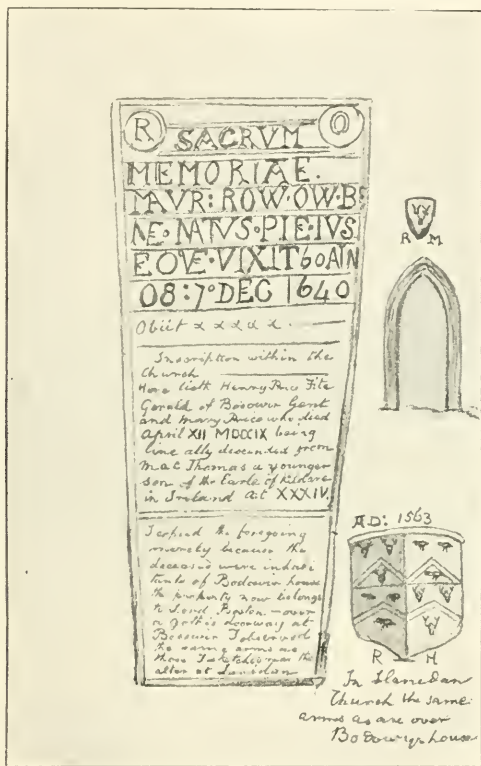 R SACRVM O
MEMORIAE.
MVR: ROW·OW·B:
NE·NATVS·PIE·IVS
EOVE·VIXIT 60 AN
08:7° DEC 1640
Obiit
Inscription within the
Church
Here lieth Henry Fitz
Gerald of Bosowir Gent
and Mary who died
April XII MDCCIX being
line ally descended from
Mac Thomas a younger
son of the Earle of Kildare
in Ireland at XXXIV.
I copied the foregoing
merely because the
deceased were inhabi
tants of Bodowir house
the property now belongs
to Lord over
a gothic doorway at
Bosowir I observed
the same arms as
those I sketched near the
alter at
R M
AD: 1563
R H
In Llanedan
Church the same
arms as are over
Bodowyr house